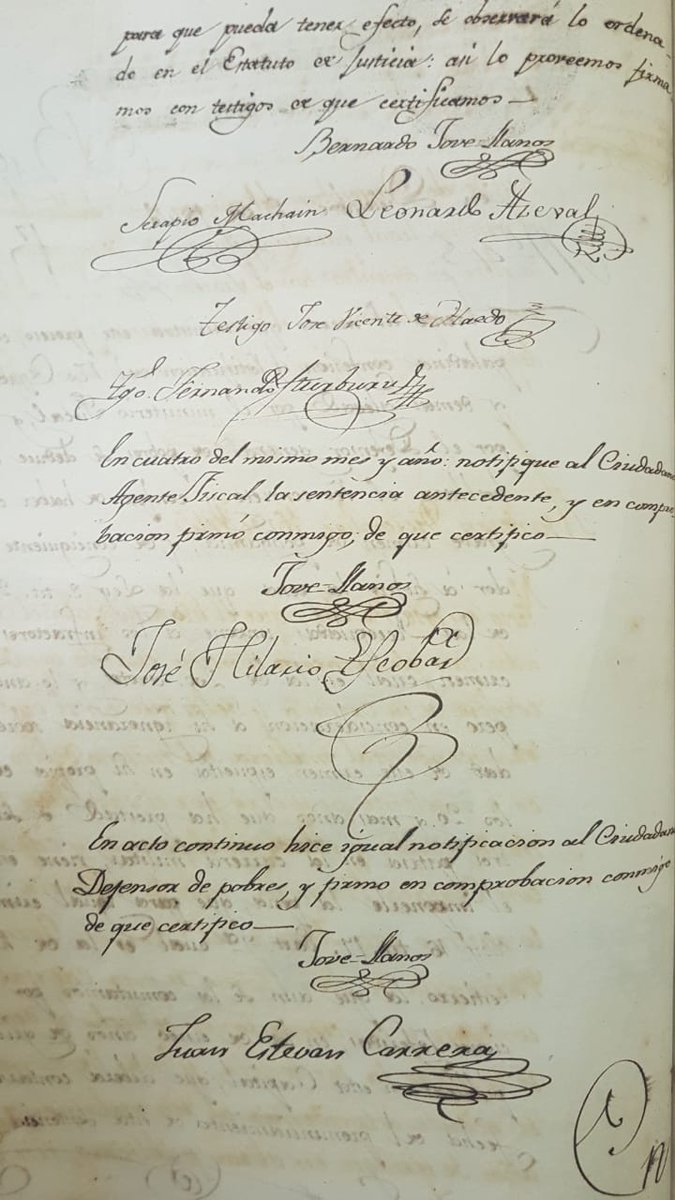 para que pueda tener efecto, se observará lo ordena-
do en el Estatuto de Justicia: asi lo proveemos firma
mos con testigos de que certificamos—
Bernardo Jove-llanos
Serapio Machain Leonardo Azeval
Testigo Jose Vicente de
Tgo. Fernando Iturburu
En cuatro del mismo mes y año: notifique al Ciudadano
Agente Fiscal la sentencia antecedente, y en compro
bacion firmó conmigo; de que certifico—
Jove-llanos
José Hilario Escobar
En acto continuo hice igual notificacion al Ciudadano
Defensor de pobres, y firmo en comprobacion conmigo
de que certifico—
Jove-llanos
Juan Estevan Carrera